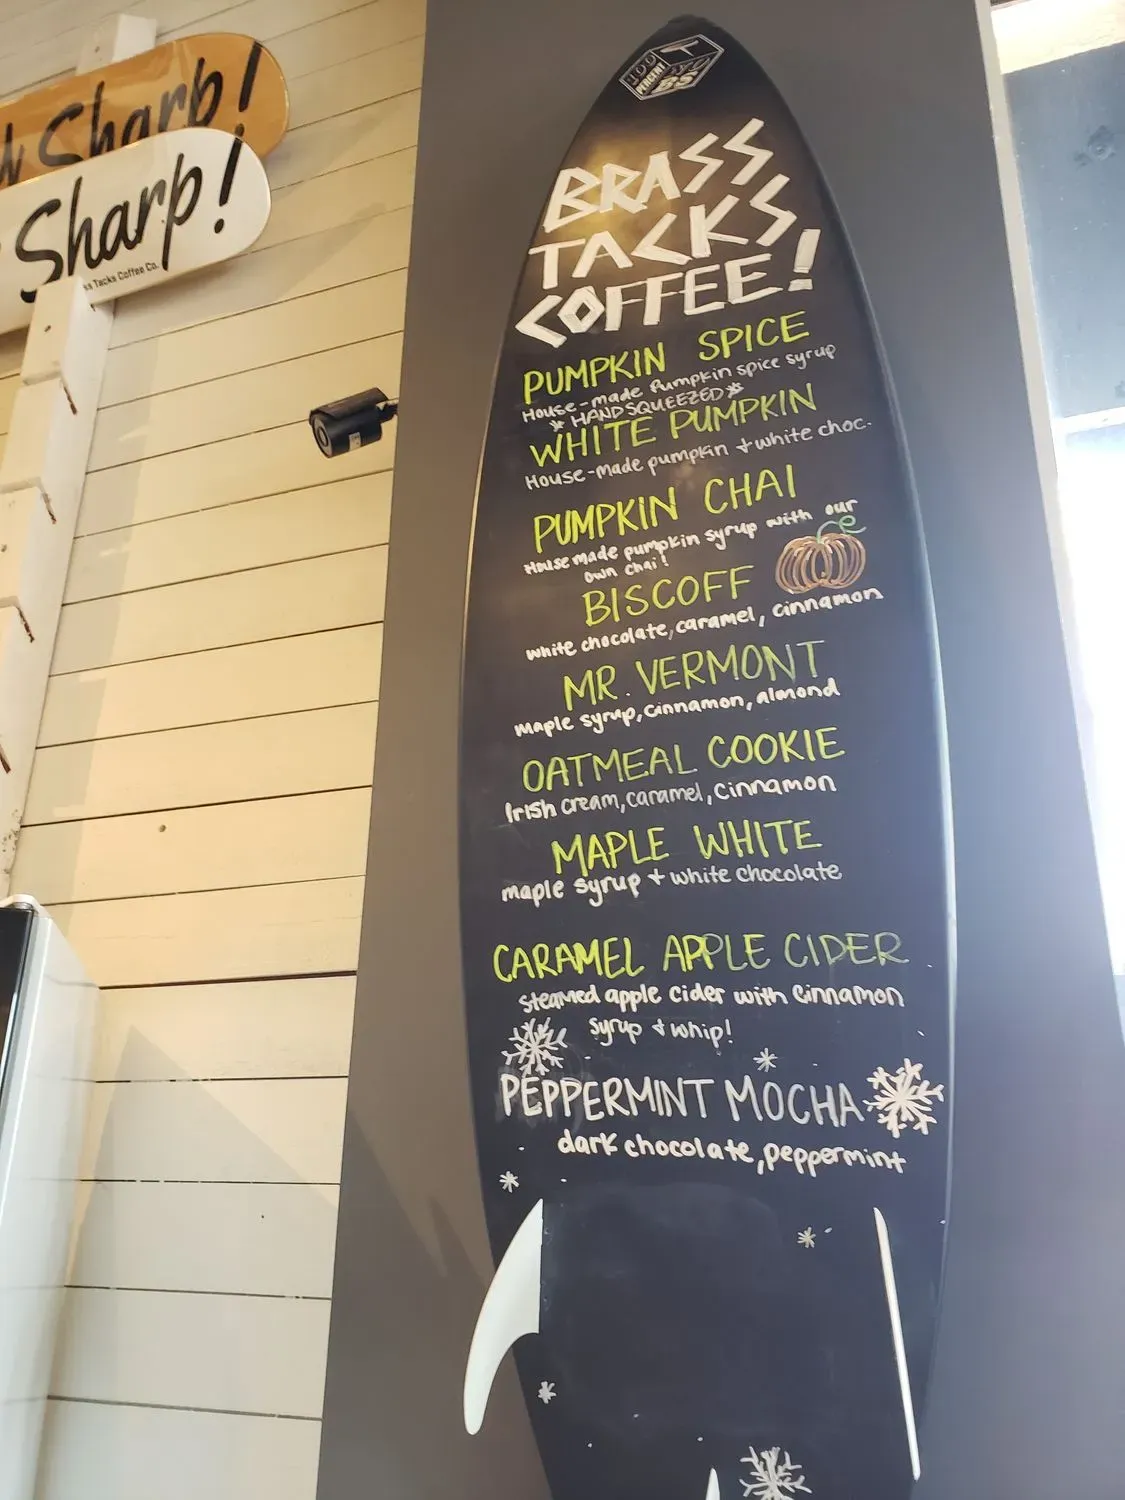 Sharp!
Sharp!
Tacks Coffee Co.
BS
BRASS
TACKS
COFFEE!
PUMPKIN SPICE
House-made Pumpkin spice syrup
* HANDSQUEEZED *
WHITE PUMPKIN
House-made pumpkin + white choc.
PUMPKIN CHAI
House made pumpkin syrup with our
own chai!
BISCOFF
white chocolate, caramel, cinnamon
MR. VERMONT
maple syrup, cinnamon, almond
OATMEAL COOKIE
Irish cream, caramel, cinnamon
MAPLE WHITE
maple syrup + white chocolate
CARAMEL APPLE CIDER
steamed apple cider with cinnamon
syrup + whip!
PEPPERMINT MOCHA
dark chocolate, peppermint